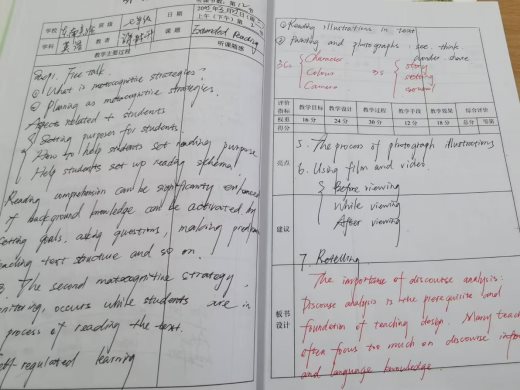 学校
班级
七年级
日期
上午(下午)
学科
英语
教者
课题
Extended Reading
教学主要过程
听课随感
Step1. Free talk.
① What is metacognitive strategies?
② Planning as metacognitive strategies.
Aspects related to students
Setting purpose for students.
How to help students set reading purpose
Help students set up reading schema
Reading comprehension can be significantly enhanced
if background knowledge can be activated by
setting goals, asking questions, making
reading text structure and so on.
3. The second metacognitive strategy,
monitoring, occurs while students are in
process of reading the text.
self-regulated learning
① Reading illustrations in text
② Painting and photographs: see. think
ponder. share
Character
Colour
Camera
3S
story
setting
评价指标
教学目标
教学设计
教学过程
教学手段
教学效果
综合评价
权重
16分
24分
30分
12分
18分
总分
等第
得分
5. The process of photograph illustrations
6. Using film and video.
Before viewing
While viewing
After viewing
亮点
建议
7. Retelling.
板书设计
The importance of discourse analysis.
Discourse analysis is the prerequisite and
foundation of teaching design. Many
often focus too much on discourse
and language knowledge.